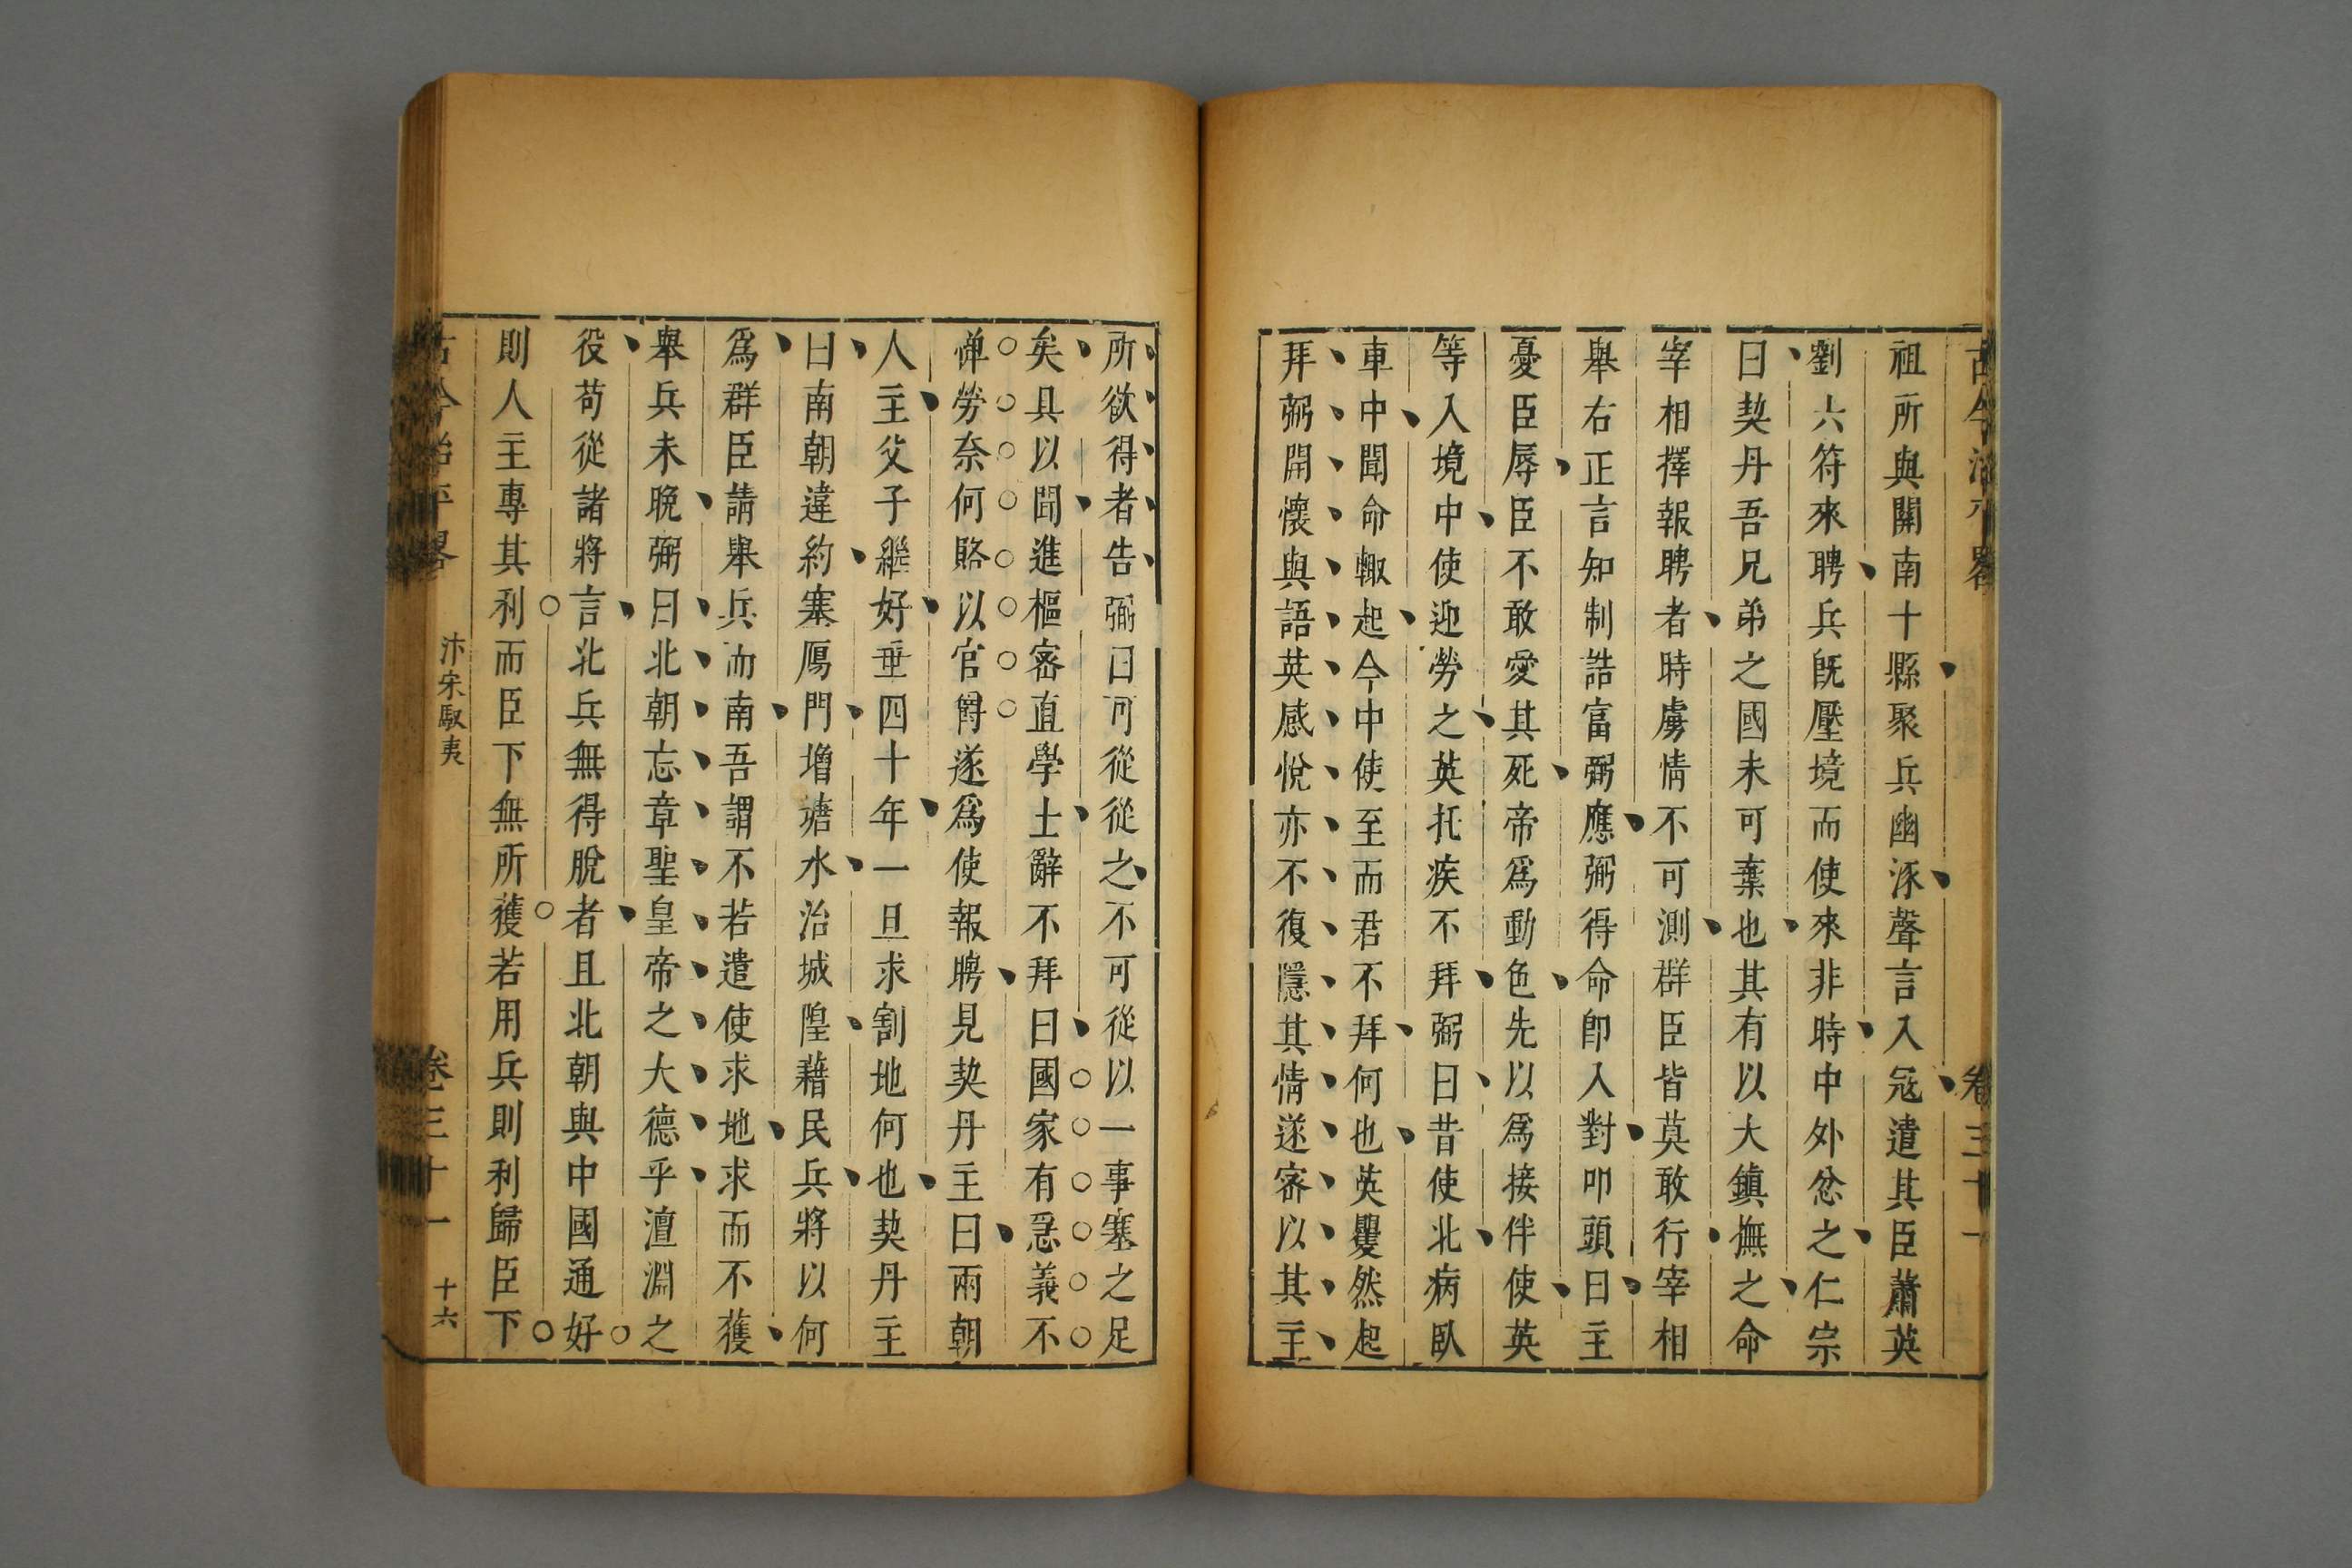 祖所與關南十縣聚兵幽涿聲言入寇遣其臣蕭英
劉六符來聘兵旣壓境而使來非時中外忿之仁宗
曰契丹吾兄弟之國未可棄也其有以大鎮撫之命
宰相擇報聘者時虜情不可測群臣皆莫敢行宰相
舉右正言知制誥富弼應弼得命卽入對叩頭曰主
憂臣辱臣不敢愛其死帝爲動色先以爲接伴使英
等入境中使迎勞之英托疾不拜弼曰昔使北病臥
車中聞命輙起今中使至而君不拜何也英矍然起
拜弼開懷與語英感悅亦不復隱其情遂密以其主
所欲得者告弼曰可從從之不可從以一事塞之足
矣具以聞進樞密直學士辭不拜曰國家有急義不
憚勞奈何賂以官爵遂爲使報聘見契丹主曰兩朝
人主父子繼好垂四十年一旦求割地何也契丹主
曰南朝違約塞鴈門增塘水治城隍藉民兵將以何
爲群臣請舉兵而南吾謂不若遣使求地求而不獲
舉兵未晚弼曰北朝忘章聖皇帝之大德乎澶淵之
役苟從諸將言北兵無得脫者且北朝與中國通好
則人主專其利而臣下無所獲若用兵則利歸臣下
古今治平畧 汴宋馭夷 卷三十一 十六